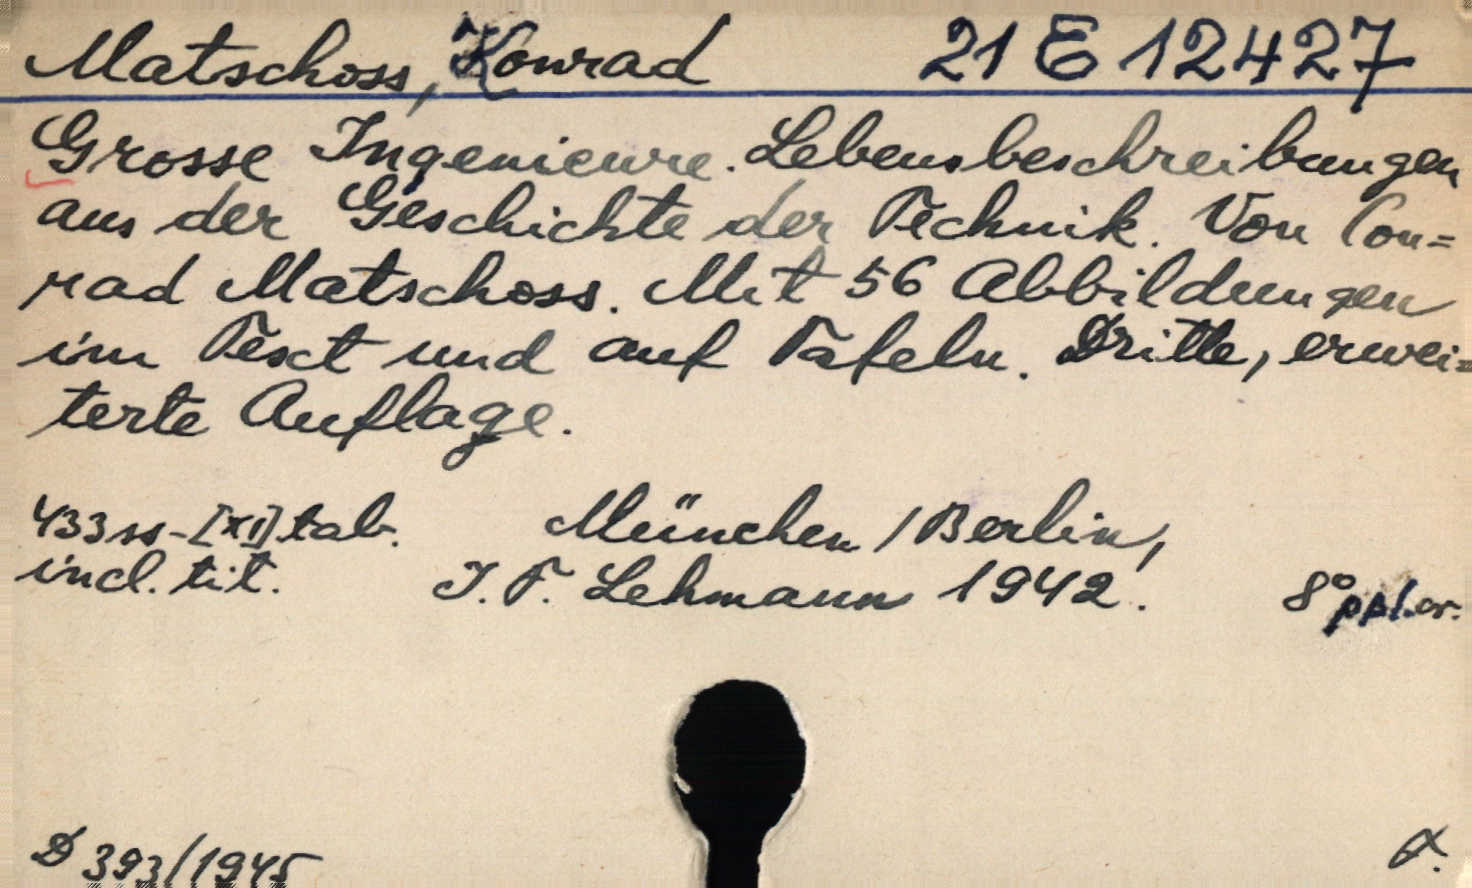 Matschoss, Konrad 21 E 12427
Grosse Ingenieure. Lebensbeschreibungen
aus der Geschichte der Technik. Von Con=
rad Matschoss. Mit 56 Abbildungen
im Text und auf Tafeln. Dritte, erwei=
terte Auflage.
433 ss - [XI] tab. München / Berlin,
incl. tit. J. F. Lehmann 1942. 8° ppl. or.
D 393/1945